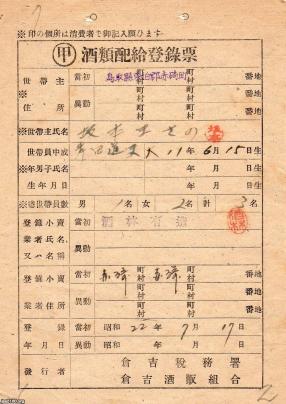 ※印の個所は消費者で御記入願ひます
甲 酒類配給登錄票
世帶主 當初 鳥取縣東伯郡赤碕町 番地
※住所 異動 町村 町村 番地
※世帶主氏名
世帶員中成 大11年6月15日生
※年男子氏名 年 月 日生
生年月日
※總世帶員數 男 1名 女 2名 計 3名
登錄小賣 當初
業者氏名
又ハ名稱 異動
登錄小賣 當初 赤碕 町村 赤碕 町村 番地
業者住所 異動 町村 町村 番地
登錄 當初 昭和22年7月17日
年月日 異動 昭和 年 月 日
發行者 倉吉稅務署
倉吉酒販組合
2